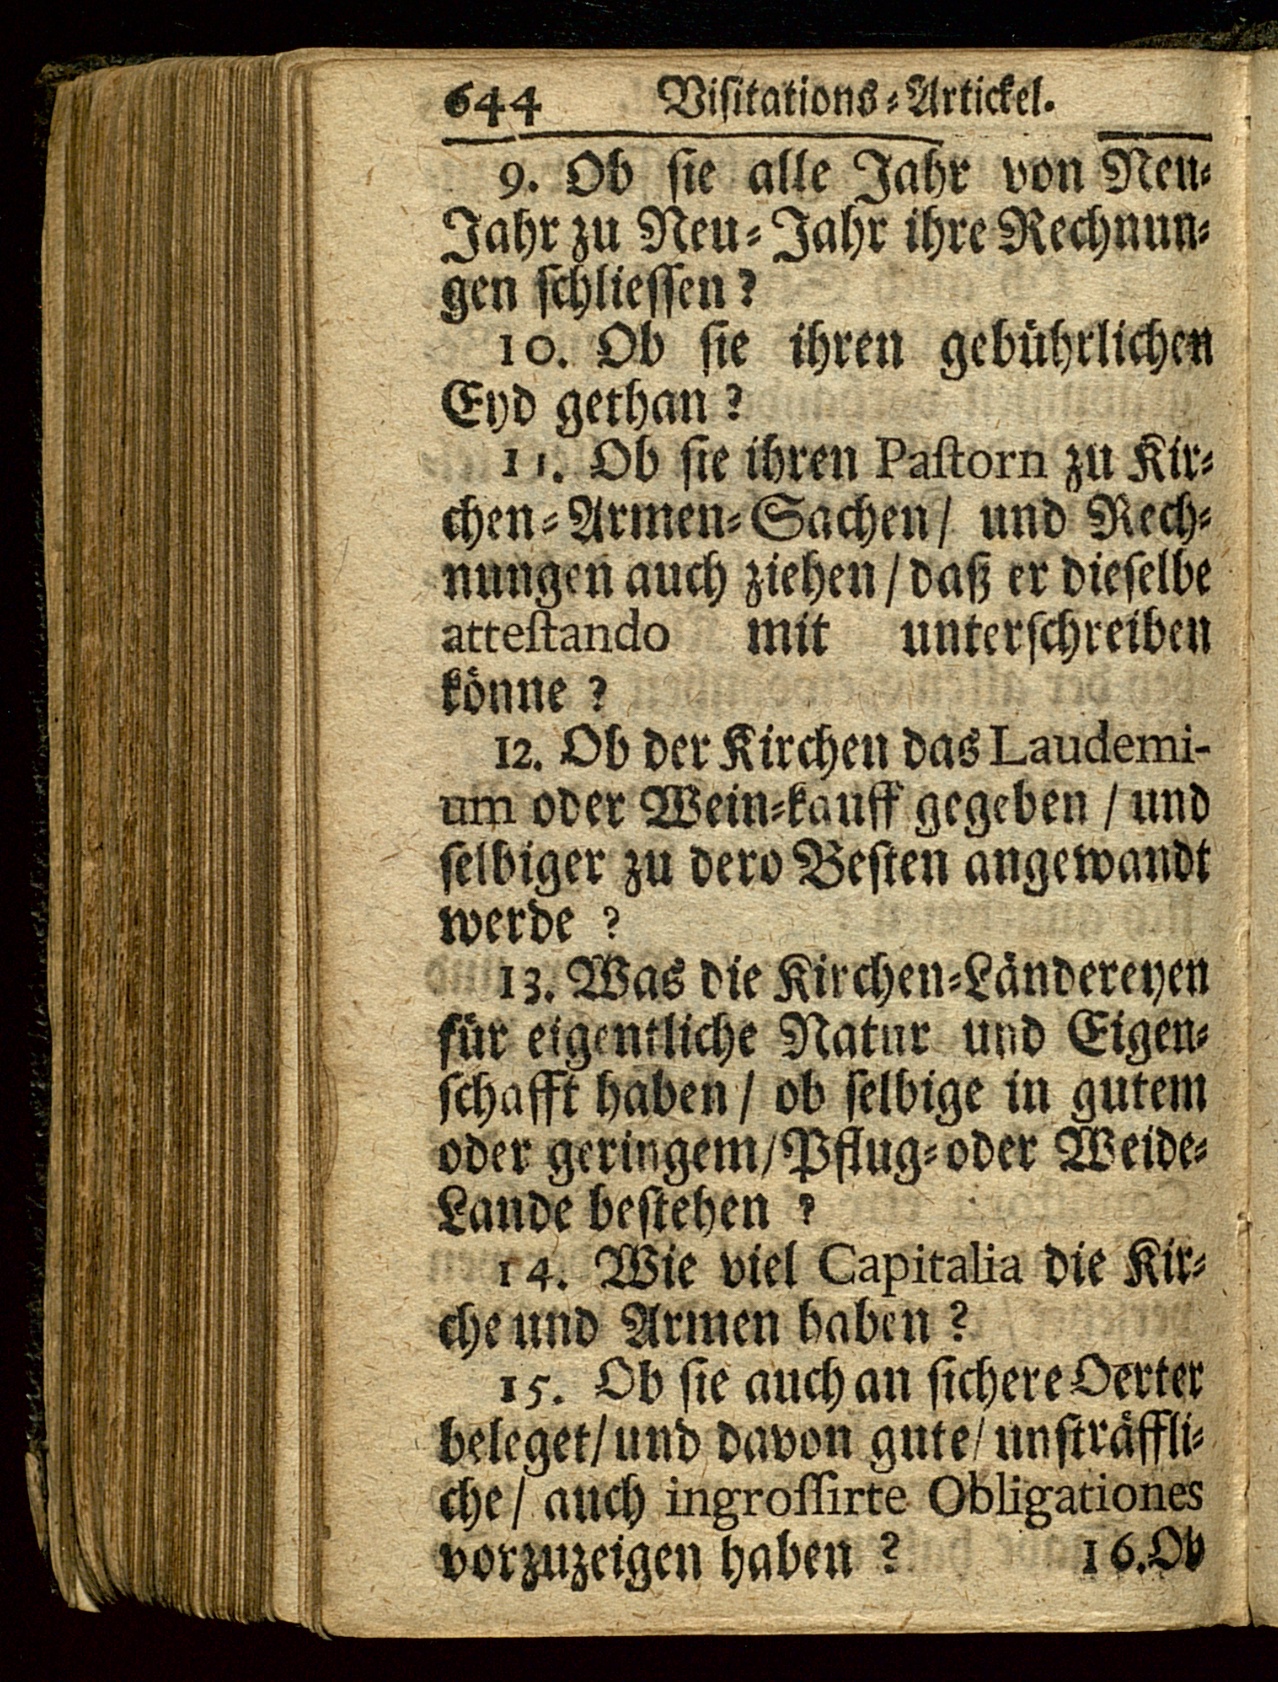 644 Visitations-Artickel.
9. Ob sie alle Jahr von Neu-
Jahr zu Neu-Jahr ihre Rechnun-
gen schliessen?
10. Ob sie ihren gebührlichen
Eyd gethan?
11. Ob sie ihren Pastorn zu Kir-
chen-Armen-Sachen/ und Rech-
nungen auch ziehen/ daß er dieselbe
attestando mit unterschreiben
könne?
12. Ob der Kirchen das Laudemi-
um oder Wein-kauff gegeben / und
selbiger zu dero Besten angewandt
werde?
13. Was die Kirchen-Ländereyen
für eigentliche Natur und Eigen-
schafft haben/ ob selbige in gutem
oder geringem/ Pflug- oder Weide-
Lande bestehen?
14. Wie viel Capitalia die Kir-
che und Armen haben?
15. Ob sie auch an sichere Oerter
beleget/ und davon gute/ unsträffli-
che/ auch ingrossirte Obligationes
vorzuzeigen haben? 16. Ob